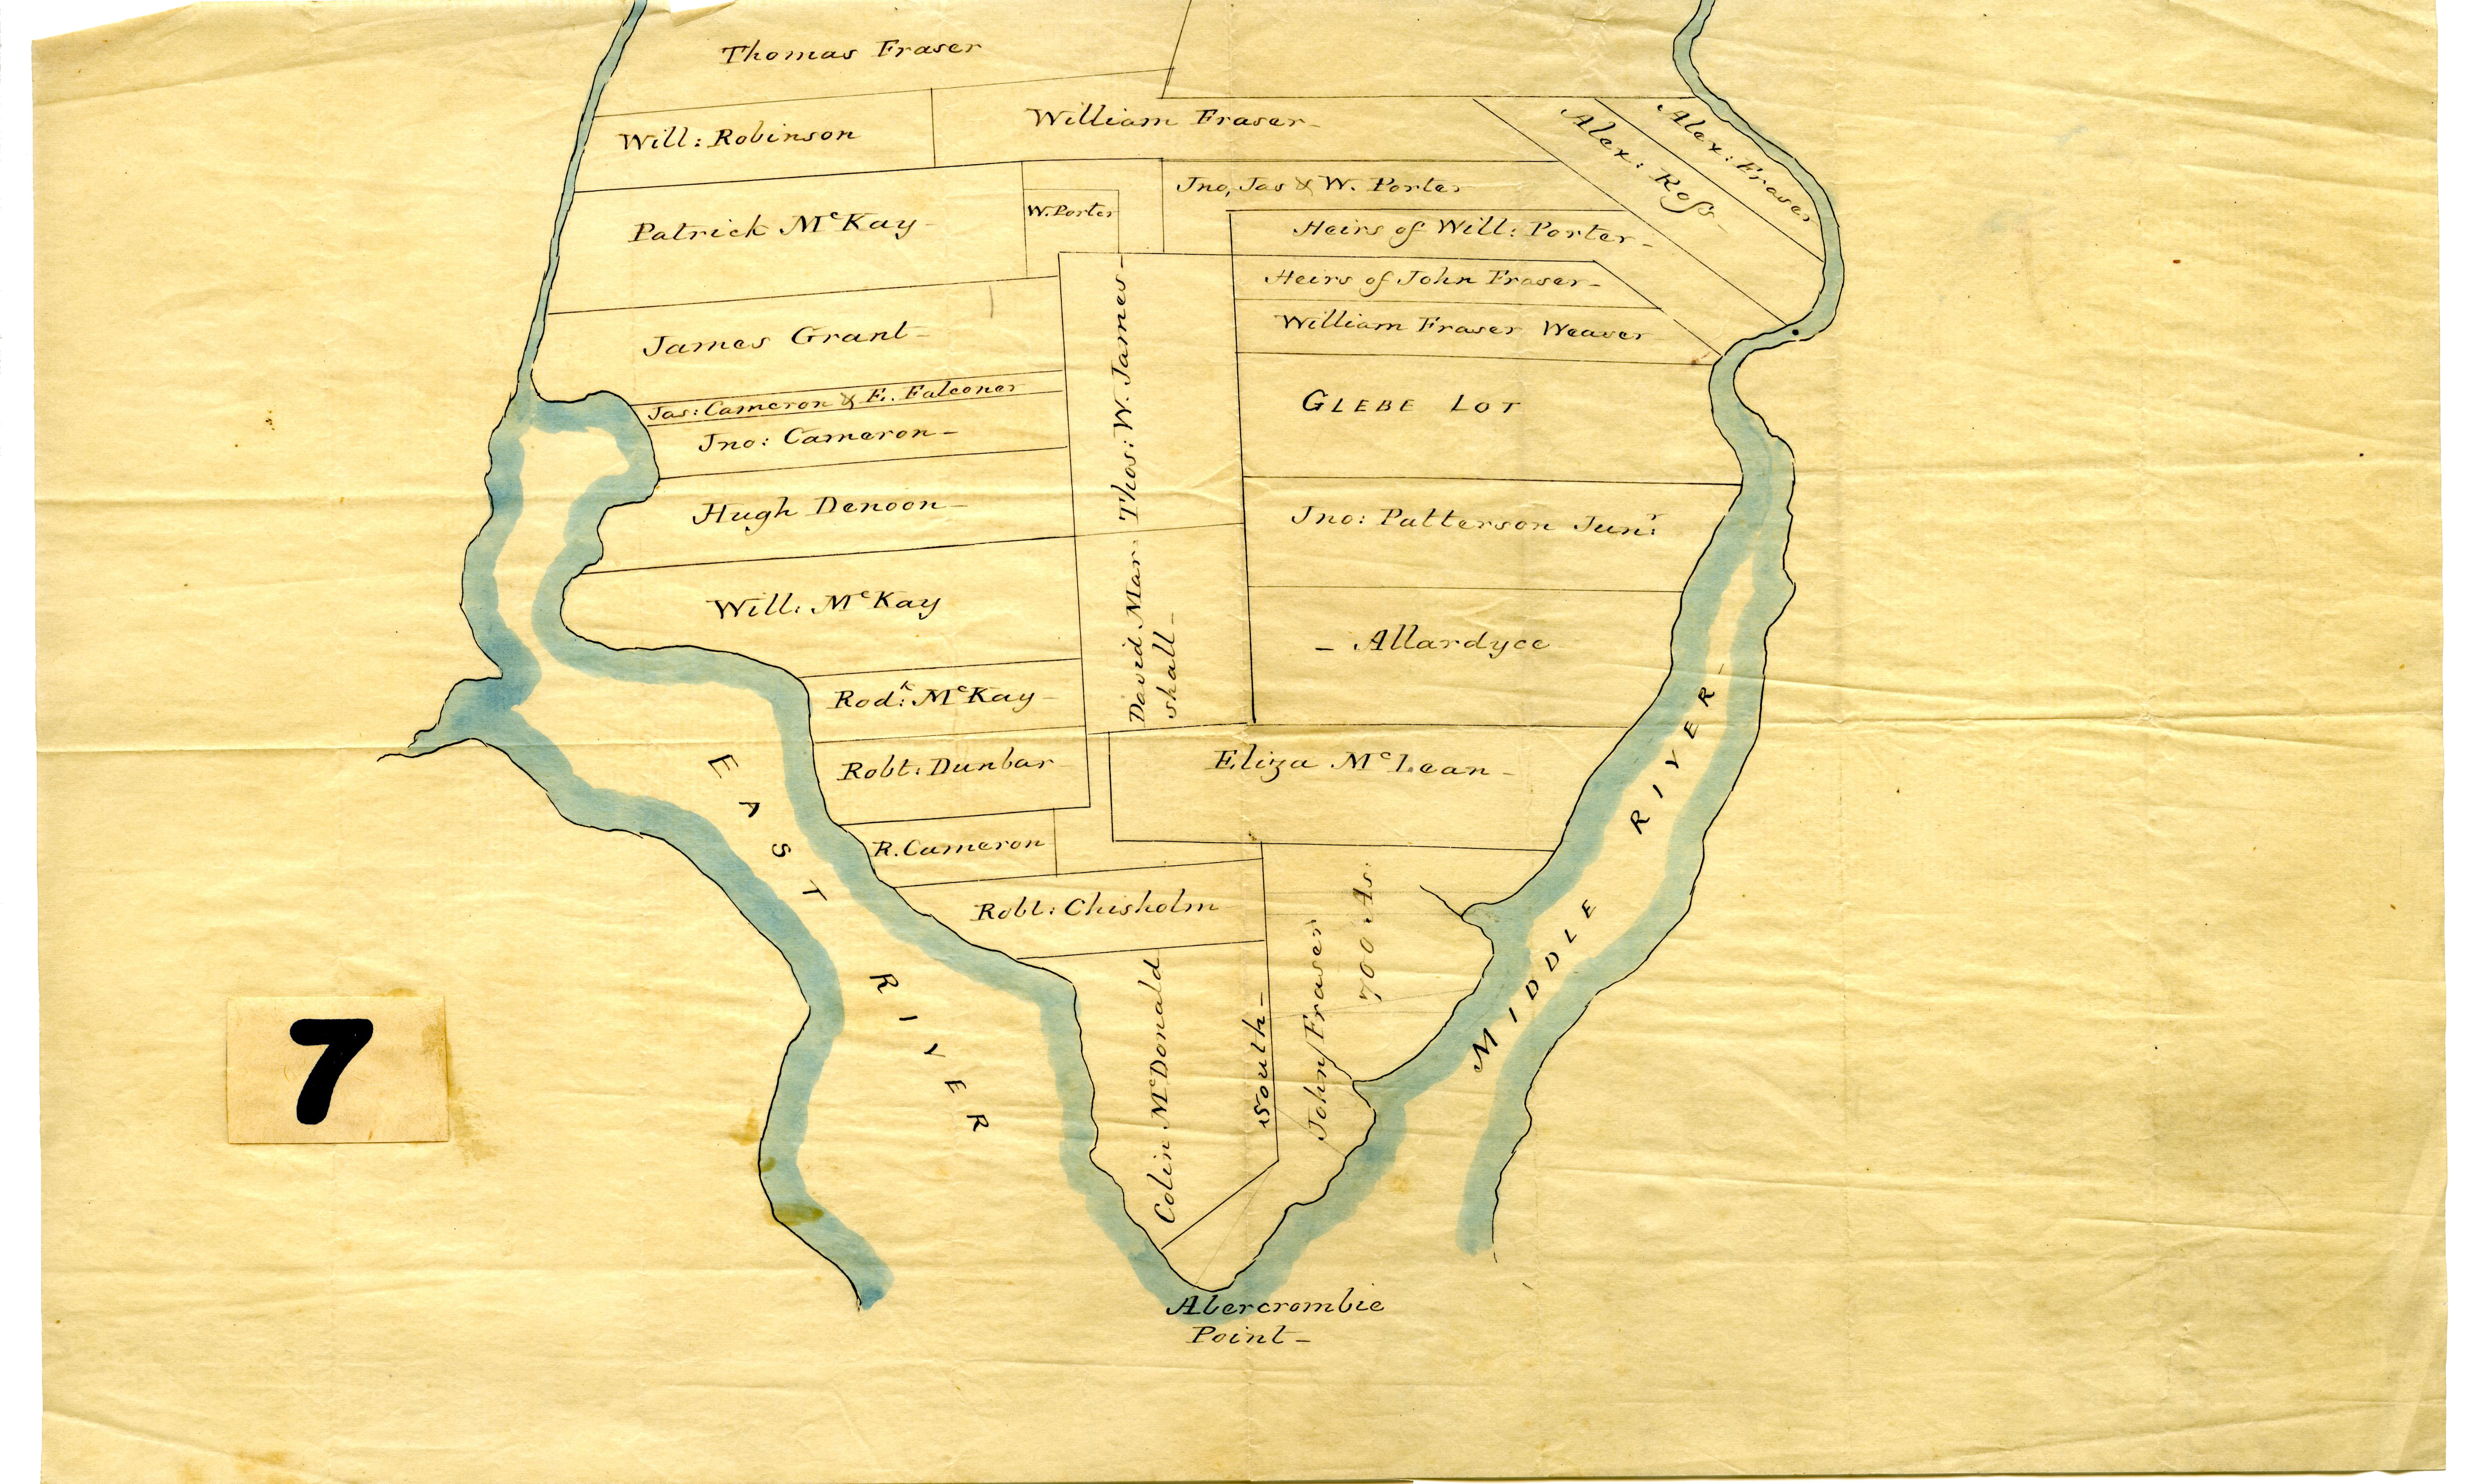 Thomas Fraser
Will: Robinson
William Fraser-
Alex: Fraser
Alex: Roſs-
Patrick McKay-
W. Porter
Jno, Jas & W. Porter
Heirs of Will: Porter-
Heirs of John Fraser-
William Fraser Weaver
James Grant-
Jas: Cameron & E. Falconer
Jno: Cameron-
Thos: W. James-
GLEBE LOT
Hugh Denoon-
Jno: Patterson Junr:
Will: McKay
David Mar-
shall-
- Allardyce
Rodk: McKay-
Robt: Dunbar-
Eliza McLean-
R. Cameron
Robt: Chisholm
Colin McDonald
South-
John Fraser
700 As.
EAST RIVER
MIDDLE RIVER-
7
Abercrombie
Point-